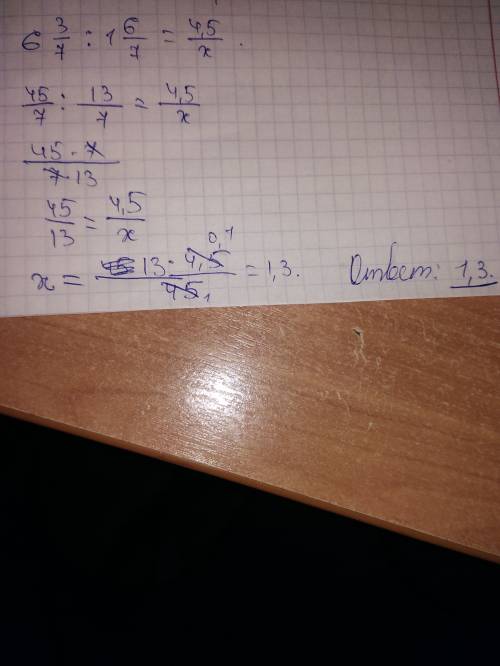 6 3/7 : 1 6/7 = 4,5/x.
45/7 : 13/7 = 4,5/x
45 · 7 / 7 · 13
45/13 = 4,5/x
x = 13 · 4,5 0,1 / 45 1 = 1,3. Ответ: 1,3.